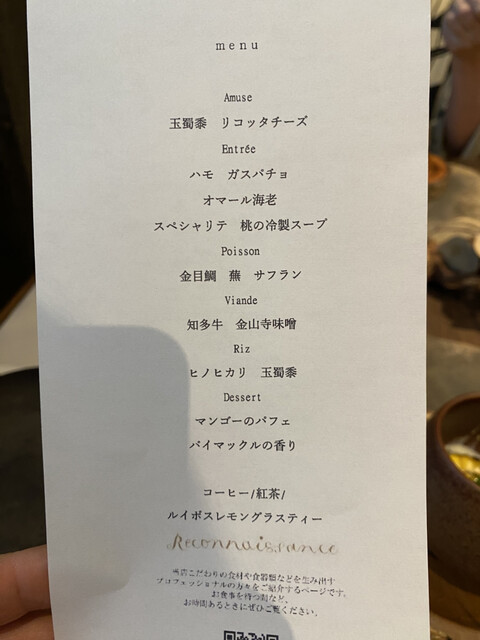 menu
Amuse
玉蜀黍　リコッタチーズ
Entrée
ハモ　ガスパチョ
オマール海老
スペシャリテ　桃の冷製スープ
Poisson
金目鯛　蕪　サフラン
Viande
知多牛　金山寺味噌
Riz
ヒノヒカリ　玉蜀黍
Dessert
マンゴーのパフェ
バイマックルの香り
コーヒー/紅茶/
ルイボスレモングラスティー
Reconnaissance
当店こだわりの食材や食器類などを生み出す
プロフェッショナルの方々をご紹介するページです。
お食事を待つ間など、
お時間あるときにぜひご覧ください。